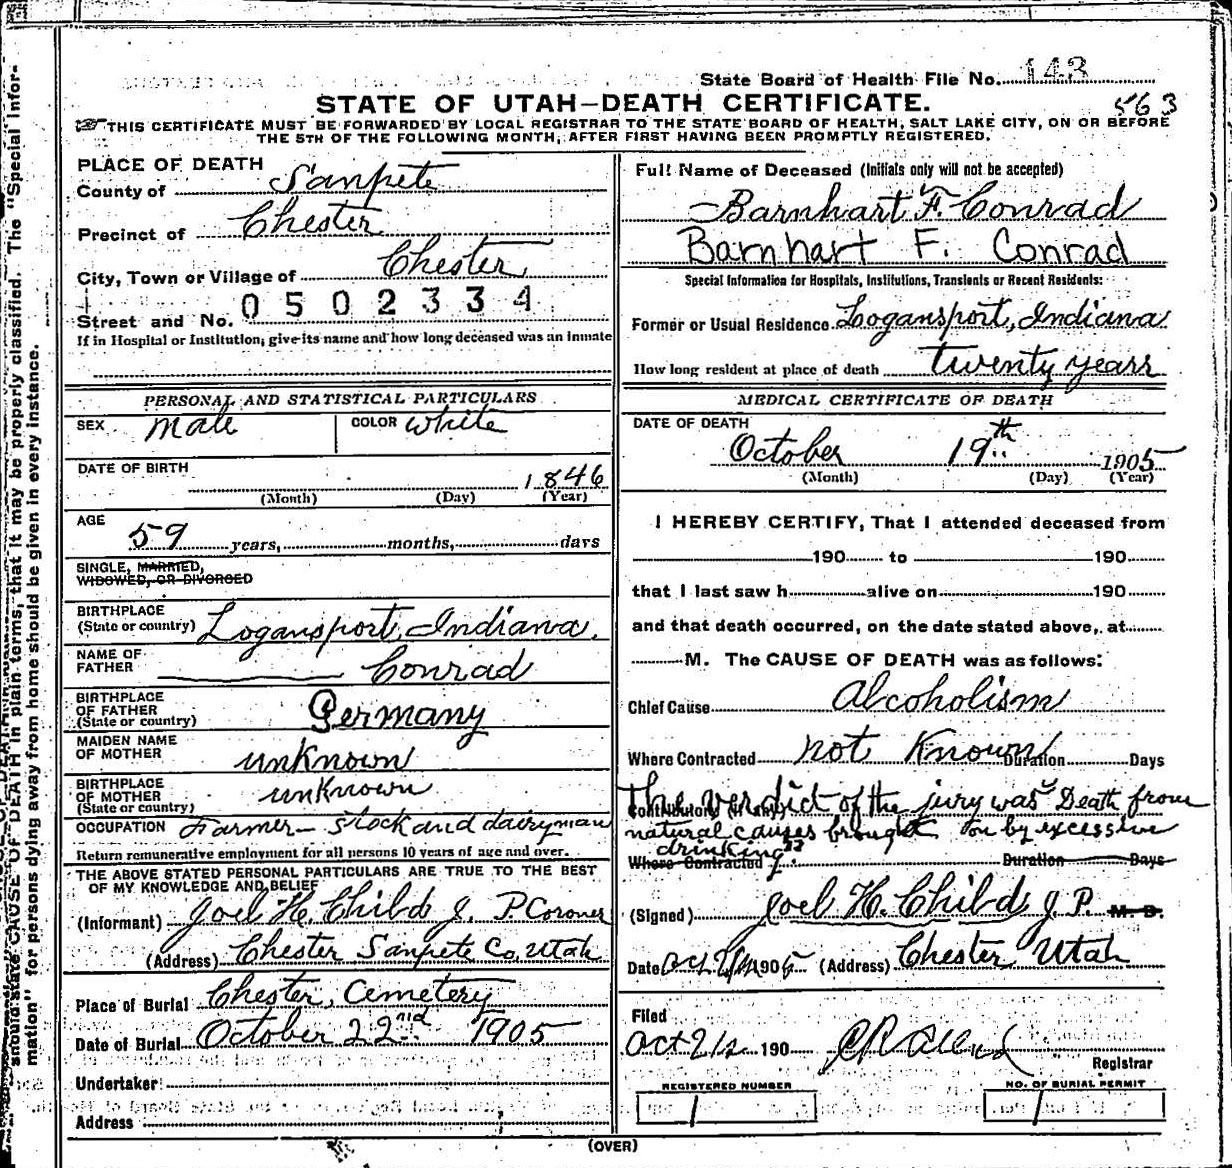 State Board of Health File No. 143
563
STATE OF UTAH—DEATH CERTIFICATE.
THIS CERTIFICATE MUST BE FORWARDED BY LOCAL REGISTRAR TO THE STATE BOARD OF HEALTH, SALT LAKE CITY, ON OR BEFORE
THE 5TH OF THE FOLLOWING MONTH, AFTER FIRST HAVING BEEN PROMPTLY REGISTERED.
PLACE OF DEATH
County of Sanpete
Precinct of Chester
City, Town or Village of Chester
0502334
Street and No.
If in Hospital or Institution, give its name and how long deceased was an inmate
PERSONAL AND STATISTICAL PARTICULARS
SEX male COLOR white
DATE OF BIRTH
1846
(Month) (Day) (Year)
AGE
59 years, months, days
SINGLE, MARRIED,
WIDOWED, OR DIVORCED
BIRTHPLACE
(State or country) Logansport, Indiana.
NAME OF
FATHER Conrad
BIRTHPLACE
OF FATHER
(State or country) Germany
MAIDEN NAME
OF MOTHER unknown
BIRTHPLACE
OF MOTHER
(State or country) unknown
OCCUPATION Farmer - stock and dairyman
Return remunerative employment for all persons 10 years of age and over.
THE ABOVE STATED PERSONAL PARTICULARS ARE TRUE TO THE BEST
OF MY KNOWLEDGE AND BELIEF
(Informant) Joel H. Child J. P. Coroner
(Address) Chester Sanpete Co, Utah
Place of Burial Chester, Cemetery
Date of Burial October 22nd 1905
Undertaker
Address
Full Name of Deceased (Initials only will not be accepted)
Barnhart F. Conrad
Barnhart F. Conrad
Special Information for Hospitals, Institutions, Transients or Recent Residents:
Former or Usual Residence Logansport, Indiana
How long resident at place of death twenty years
MEDICAL CERTIFICATE OF DEATH
DATE OF DEATH
October 19th 1905
(Month) (Day) (Year)
I HEREBY CERTIFY, That I attended deceased from
190 to 190
that I last saw h alive on 190
and that death occurred, on the date stated above, at
M. The CAUSE OF DEATH was as follows:
Chief Cause Alcoholism
Where Contracted not known Duration Days
Contributory (if any)
The verdict of the jury was "Death from
natural causes brought on by excessive
drinking".
Where Contracted Duration Days
(Signed) Joel H. Child J. P. M. D.
Date Oct 1905 (Address) Chester Utah
Filed
Oct 190
Registrar
REGISTERED NUMBER NO. OF BURIAL PERMIT
1 1
(OVER)
should state CAUSE OF DEATH in plain terms, that it may be properly classified. The "Special Infor-
mation" for persons dying away from home should be given in every instance.